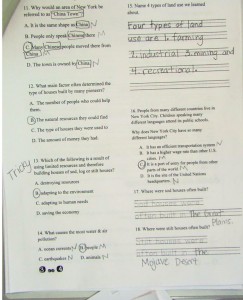 11. Why would an area of New York be
referred to as "China Town"?
A. It is the same shape as China N
B. People only speak Chinese there M
C. Many Chinese people moved there from
China
D. The town is owned by China N
12. What main factor determined the
type of houses built by many pioneers?
A. The number of people who could help
them.
B. The natural resources they could find
C. The type of houses they were used to
D. The amount of money they had
Tricky
13. Which of the following is a result of
using limited resources and therefore
building houses of sod, log or still houses?
A. destroying resources
B. adapting to the environment
C. adapting to human needs
D. saving the economy
14. What causes the most water & air
pollution?
A. ocean currents N B. people M
C. earthquakes N D. animals N
15. Name 4 types of land use we learned
about.
Four types of land
use are 1. farming
2. industrial 3. mining and
4. recreational.
16. People from many different countries live in
New York City. Children speaking many
different languages attend its public schools.
Why does New York City have so many
different languages?
A. It has an efficient transportation system N
B. It has a higher wage rate than other U.S.
cities. M
C. It is a port of entry for people from other
parts of the world M
D. It is the site of the United Nations
headquarters. N
17. Where were sod houses often built?
the Great
Plains.
18. Where were still houses often built?
the
Mojave Desert